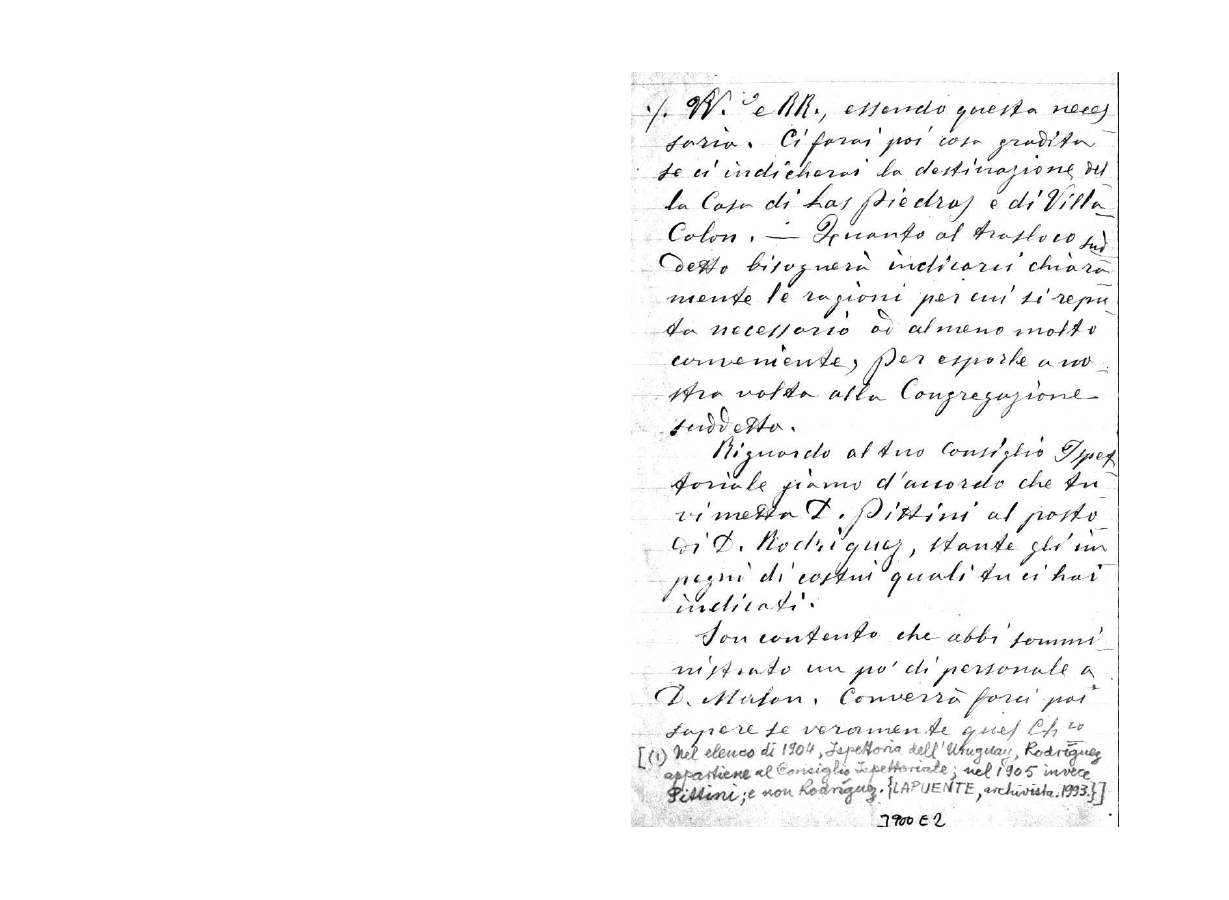 ./. VV. e RR., essendo questa neces
saria. Ci farai poi cosa gradita
se ci indicherai la destinazione del
la Casa di Las Piedras e di Villa
Colon. — Quanto al trasloco sud
detto bisognerà indicarci chiara
mente le ragioni per cui si repu
ta necessario od almeno molto
conveniente, per esporle a no
stra volta alla Congregazione
suddetta.
Riguardo al tuo Consiglio Ispet
toriale siamo d'accordo che tu
vi metta D. Pittini al posto
di D. Rodriguez, stante gli im
pegni di costui quali tu ci hai
indicati.
Son contento che abbi sommi
nistrato un po' di personale a
D. Malan. Converrà farci poi
sapere se veramente quel Ch co
[(1) Nel elenco di 1904, Ispettoria dell'Uruguay, Rodríguez
appartiene al Consiglio Ispettoriale; nel 1905 invece
Pittini; e non Rodríguez. {LAPUENTE, archivista. 1993.}]
3900 E 2